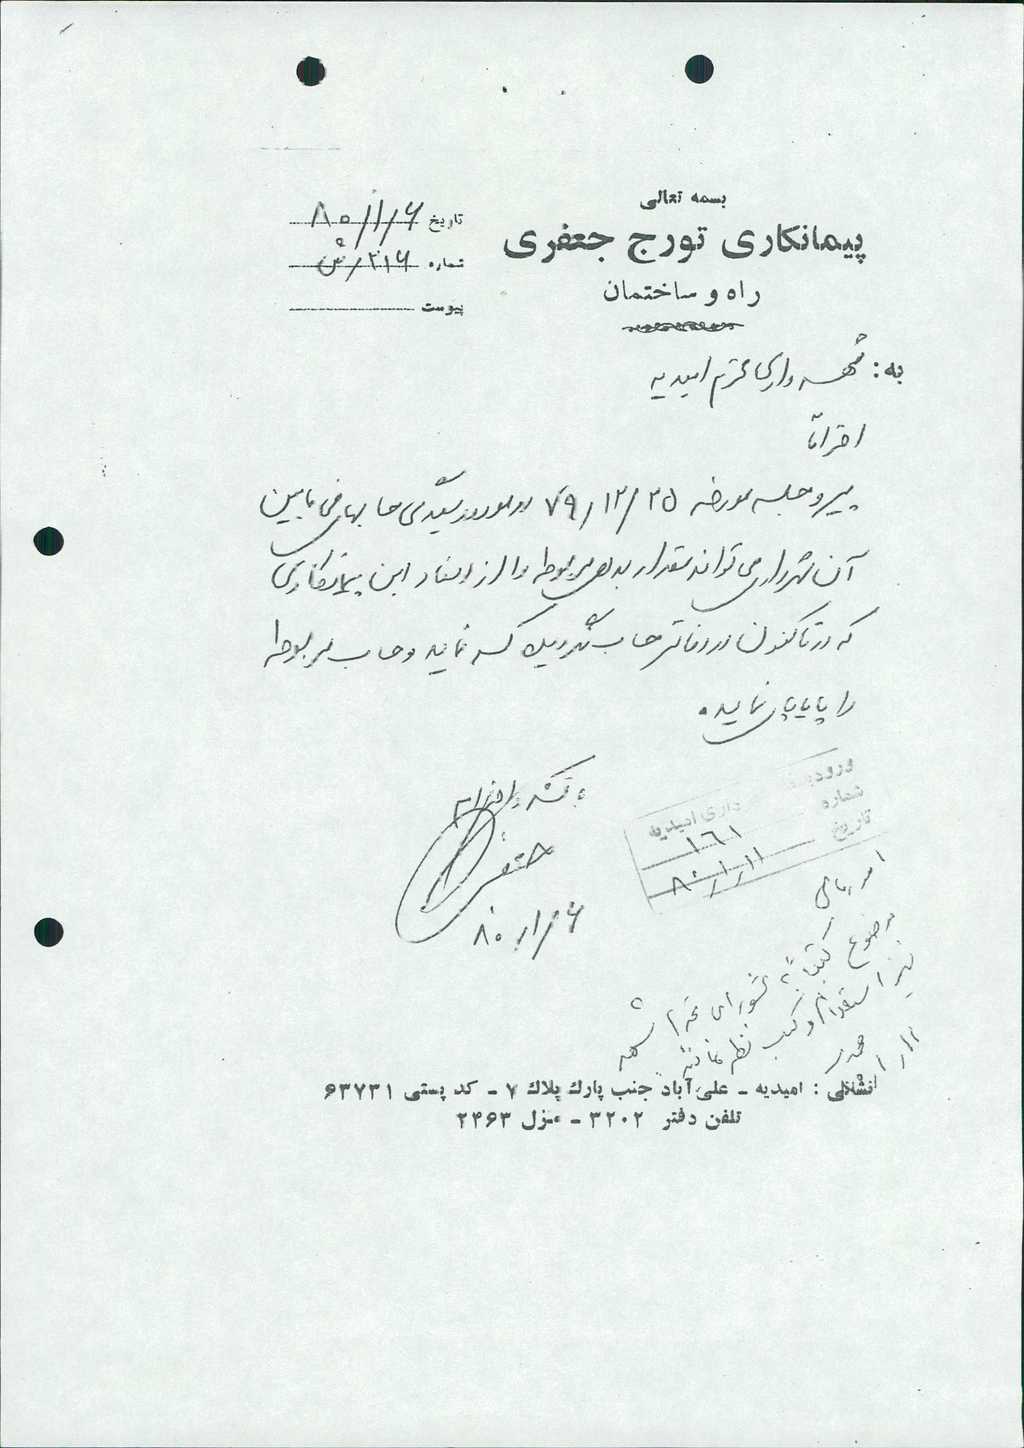 بسمه تعالی
پیمانکاری تورج جعفری
راه و ساختمان
تاریخ ۸۰/۱/۶
شماره ۲۱۶/ش
پیوست
به: شهرداری محترم امیدیه
احتراماً
پیرو جلسه مورخه ۷۹/۱۲/۲۵ در مورد رسیدگی حسابهای فی مابین
آن شهرداری می تواند مقدار بدهی مربوطه را از این پیمانکاری
که تاکنون در دفاتر حساب کسر نمایید و حساب مربوطه
را پایاپای نمایید.
با تشکر و احترام
جعفری
۸۰/۱/۶
ورود
داری امیدیه
شماره ۱۶۱
تاریخ ۸۰/۱/۱۱
امور مالی
موضوع کتباً شورای محترم شهر
نیز استعلام و کسب نظر نمائید
۱/۱۱
نشانی : امیدیه ـ علی‌آباد جنب پارك پلاك ۷ ـ کد پستی ۶۳۷۳۱
تلفن دفتر ۳۲۰۲ ـ منزل ۲۴۶۳